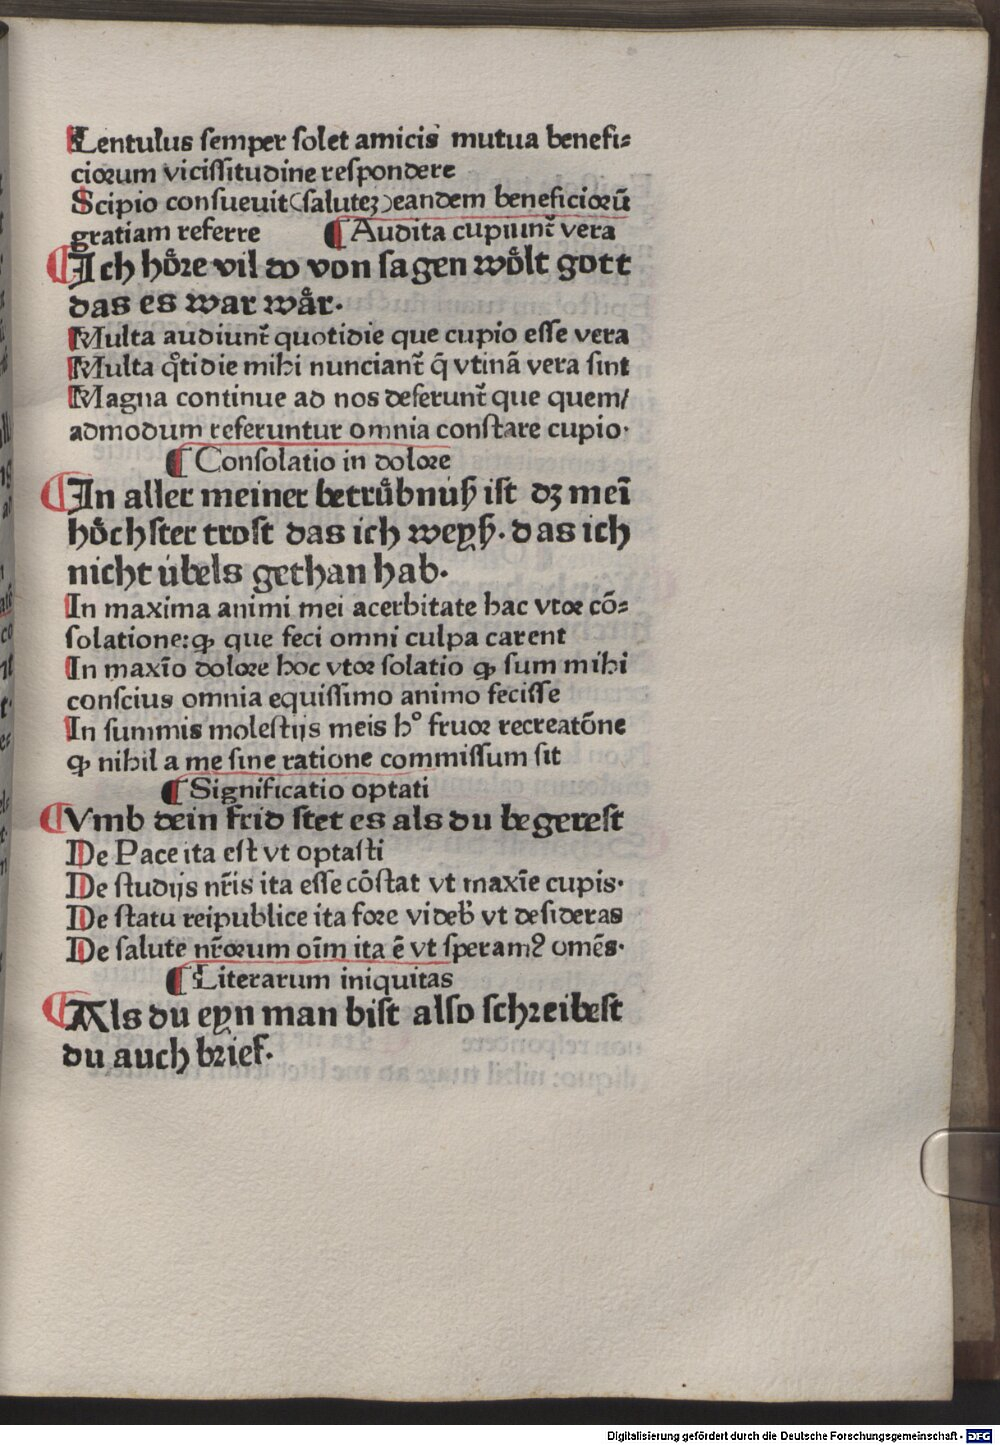 Lentulus ſemper ſolet amicis mutua benefi⸗
ciorum viciſſitudine reſpondere
Scipio conſueuit (ſaluteꝫ) eandem beneficiorū
gratiam referre ¶ Audita cupiunt᷑ vera
¶ Ich hoͤre vil do von ſagen woͤlt gott
das es war waͤr.
Multa audiunt᷑ quotidie que cupio eſſe vera
Multa qͦtidie mihi nunciant᷑ q̄ vtinā vera ſint
Magna continue ad nos deferunt᷑ que quem/
admodum referuntur omnia conſtare cupio.
¶ Conſolatio in dolore
¶ In aller meiner betruͤbnuß iſt dꝫ mei̅
hoͤchſter troſt das ich weyß. das ich
nicht u̇bels gethan hab.
In maxima animi mei acerbitate hac vtor cō⸗
ſolatione: ꝙ que feci omni culpa carent
In maxi̅o dolore hoc vtor ſolatio ꝙ ſum mihi
conſcius omnia equiſſimo animo feciſſe
In ſummis moleſtijs meis hͦ fruor recreatōne
ꝙ nihil a me ſine ratione commiſſum ſit
¶ Significatio optati
¶ Vmb dein frid ſtet es als du begereſt
De Pace ita eſt vt optaſti
De ſtudijs nr̄is ita eſſe cōſtat vt maxi̅e cupis.
De ſtatu reipublice ita fore videb᷑ vt deſideras
De ſalute nr̄orum oi̅m ita ē vt ſperamꝰ omēs.
¶ Literarum iniquitas
¶ Als du eyn man biſt alſo ſchreibeſt
du auch brief.
Digitalisierung gefördert durch die Deutsche Forschungsgemeinschaft - DFG